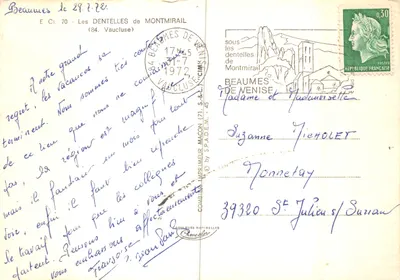 Beaumes le 29.7.72.
E C. 70 - Les DENTELLES de MONTMIRAIL
(84. Vaucluse)
A notre grand
regret, les vacances se
terminent. Nous sommes très contents
de ce lieu que nous ne connaissions
pas, la région est magnifique
mais il faudrait un mois pour tout
voir, enfin il faut bien reprendre
le travail pour que les collègues
partent. Pensons bien à vous et
vous embrassons affectueusement
Françoise Jean Paul
84 BEAUMES DE VENISE
17H45
-7
1972
VAUCLUSE
sous
les dentelles
de
Montmirail
BEAUMES
DE VENISE
0,30
REPUBLIQUE FRANCAISE
Madame et Mademoiselle
Suzanne
39320 St Julien s/ Suran